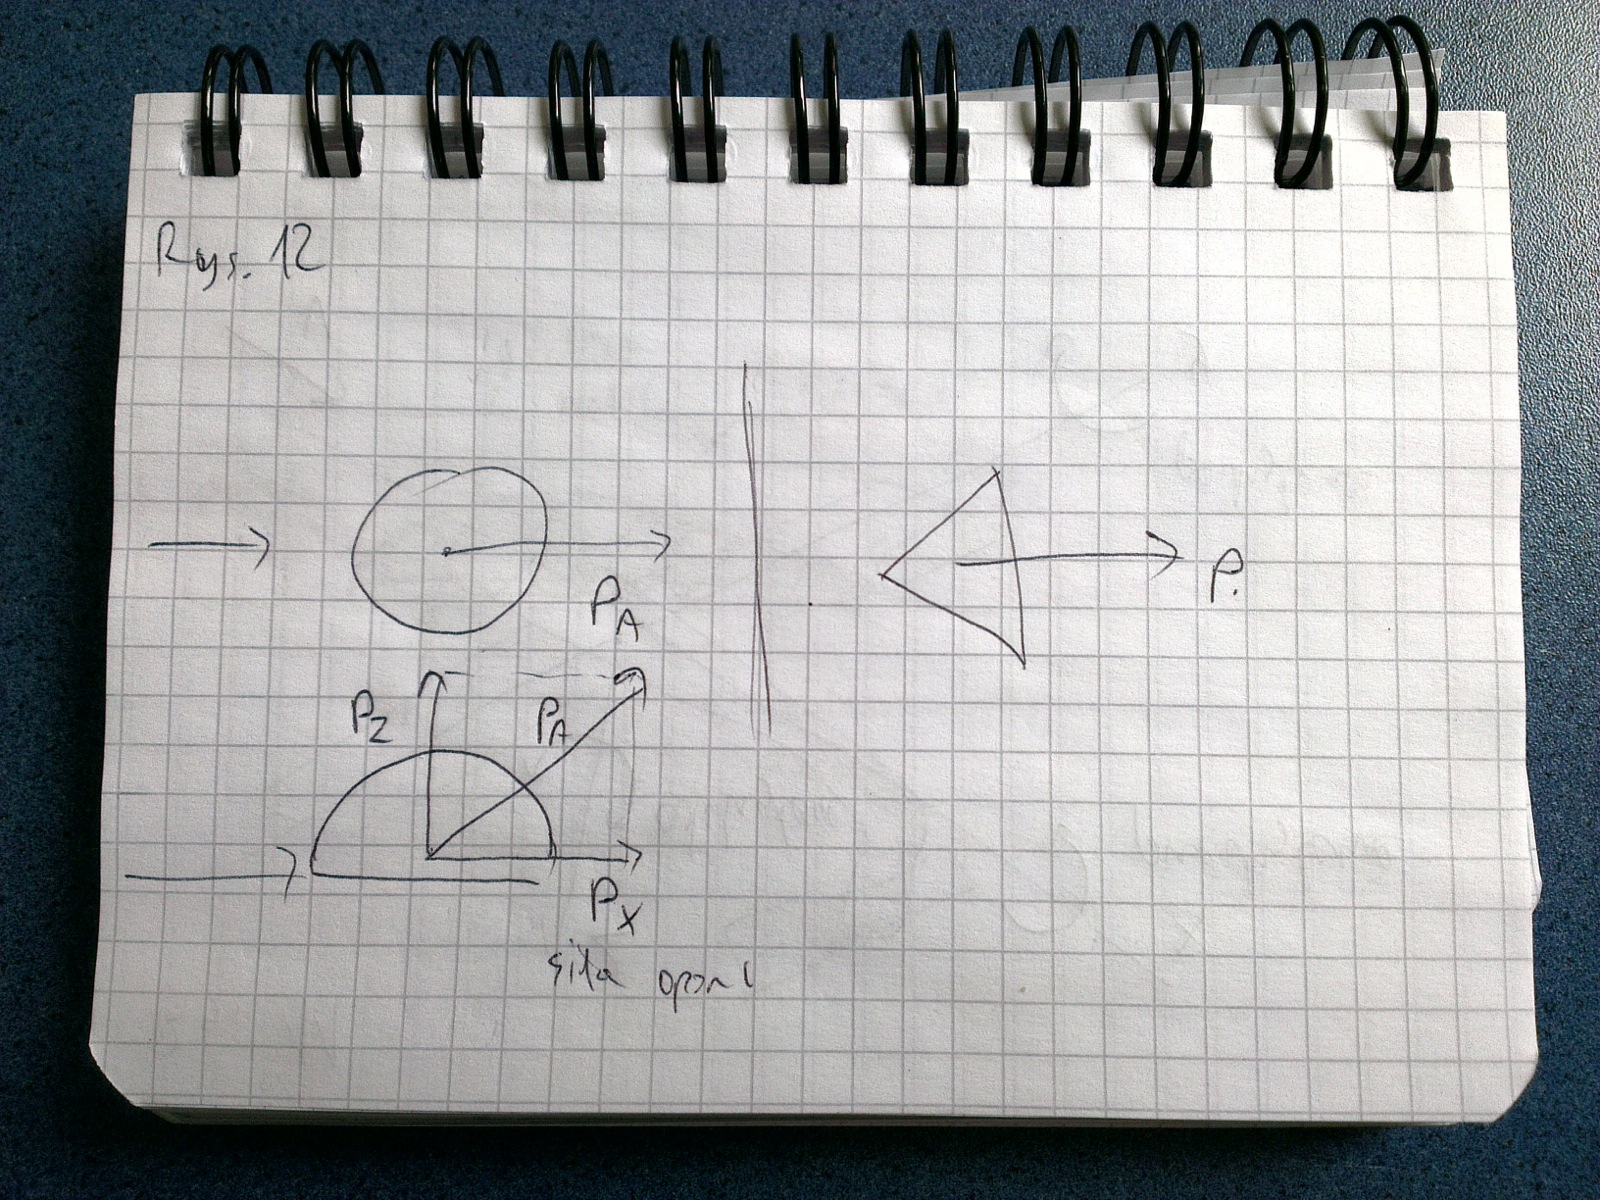 Rys. 12
P_A
P.
P_Z
P_A
P_X
siła oporu